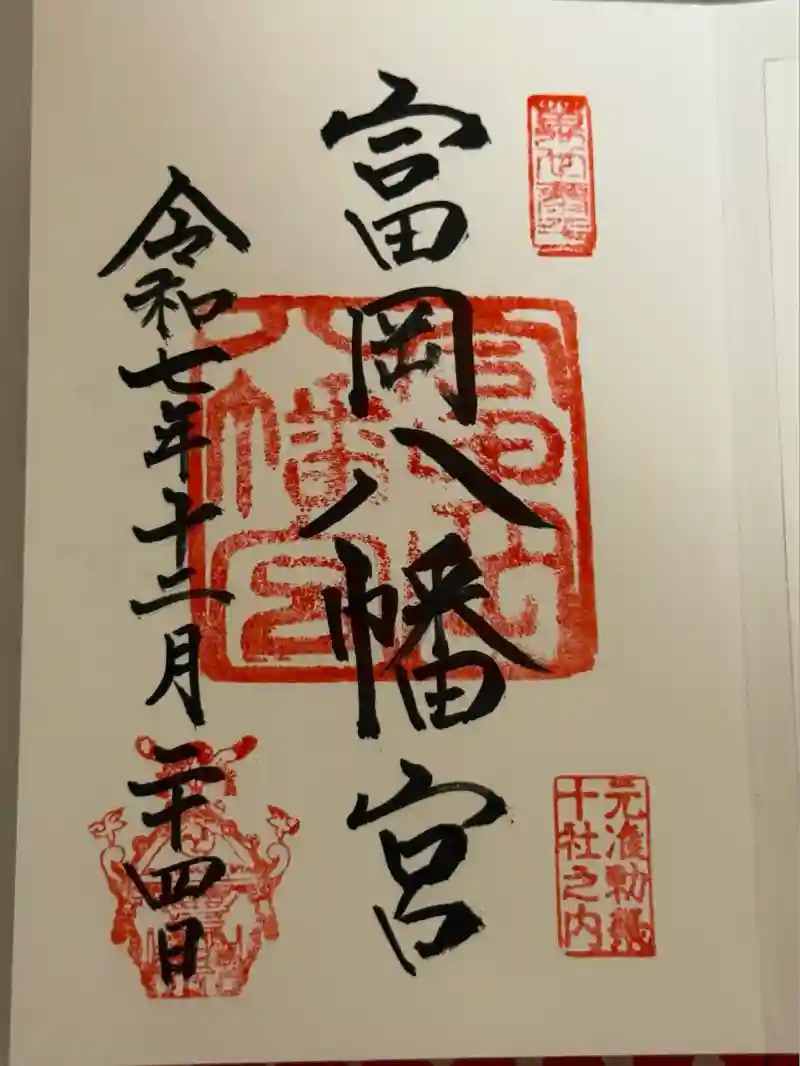 富岡八幡宮
元准勅祭
十社之内
富岡
八幡宮
令和七年十二月二十四日